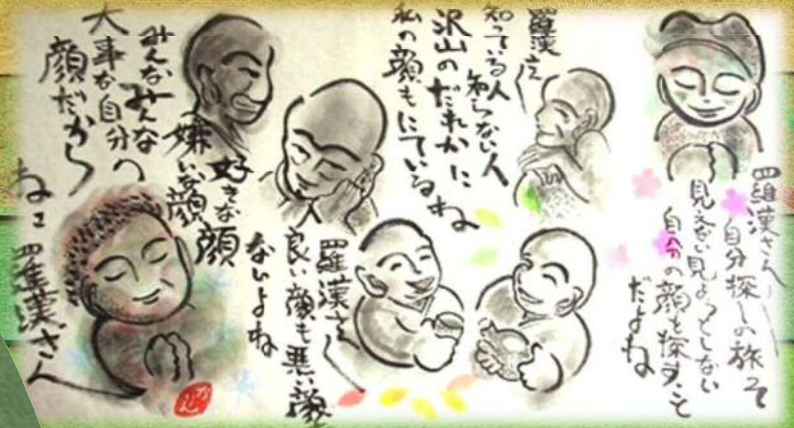 羅漢さん
自分探しの旅
見えない見ようとしない
自分の顔を探すこと
だよね
羅漢さん
知っている人
知らない人
沢山のだれかに
私の顔もにているね
羅漢さん
良い顔も悪い顔
ないよね
好きな顔
嫌いな顔
みんなみんな
大事な自分の
顔だから
ねェ 羅漢さん